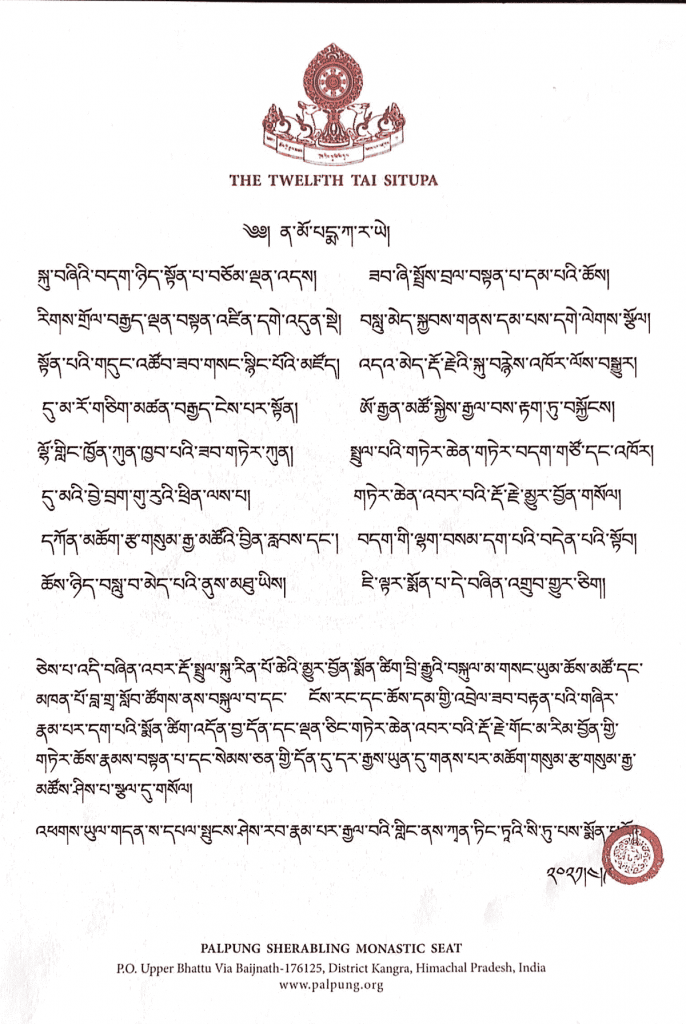 THE TWELFTH TAI SITUPA
༄༅། ན་མོ་པདྨ་ཀ་ར་ཡེ།
སྐུ་བཞིའི་བདག་ཉིད་སྟོན་པ་བཅོམ་ལྡན་འདས། ཟབ་ཞི་སྤྲོས་བྲལ་བསྟན་པ་དམ་པའི་ཆོས།
རིགས་གྲོལ་བརྒྱད་ལྡན་བསྟན་འཛིན་དགེ་འདུན་སྡེ། བསླུ་མེད་སྐྱབས་གནས་དམ་པས་དགེ་ལེགས་སྩོལ།
སྟོན་པའི་གདུང་འཚོབ་ཟབ་གསང་སྙིང་པོའི་མཛོད། འདའ་མེད་རྡོ་རྗེའི་སྐུ་བརྙེས་འཁོར་ལོས་བསྒྱུར།
དུ་མ་རོ་གཅིག་མཚན་བརྒྱད་ངེས་པར་སྟོན། ཨོ་རྒྱན་མཚོ་སྐྱེས་རྒྱལ་བས་རྟག་ཏུ་བསྐྱོངས།
ལྷོ་གླིང་ཁྱོན་ཀུན་ཁྱབ་པའི་ཟབ་གཏེར་ཀུན། སྤྲུལ་པའི་གཏེར་ཆེན་གཏེར་བདག་གཙོ་དང་འཁོར།
དུ་མའི་བྱེ་བྲག་གུ་རུའི་ཕྲིན་ལས་པ། གཏེར་ཆེན་འབར་བའི་རྡོ་རྗེ་མྱུར་བྱོན་གསོལ།
དཀོན་མཆོག་རྩ་གསུམ་རྒྱ་མཚོའི་བྱིན་རླབས་དང་། བདག་གི་ལྷག་བསམ་དག་པའི་བདེན་པའི་སྟོབ།
ཆོས་ཉིད་བསླུ་བ་མེད་པའི་ནུས་མཐུ་ཡིས། ཇི་ལྟར་སྨོན་པ་དེ་བཞིན་འགྲུབ་གྱུར་ཅིག།
ཅེས་པ་འདི་བཞིན་འབར་རྡོ་སྤྲུལ་སྐུ་རིན་པོ་ཆེའི་མྱུར་བྱོན་སྨོན་ཚིག་བྲི་རྒྱུའི་བསྐུལ་མ་གསང་ཡུམ་ཆོས་མཚོ་དང་
མཁན་པོ་བླ་གྲྭ་སློབ་ཚོགས་ནས་བསྐུལ་བ་དང་ ངོས་རང་དང་ཆོས་དམ་གྱི་འབྲེལ་ཟབ་བརྟན་པའི་གཞིར་
རྣམ་པར་དག་པའི་སྨོན་ཚིག་འདོན་བྱ་དོན་དང་ལྡན་ཅིང་གཏེར་ཆེན་འབར་བའི་རྡོ་རྗེ་གོང་མ་རིམ་བྱོན་གྱི་
གཏེར་ཆོས་རྣམས་བསྟན་པ་དང་སེམས་ཅན་གྱི་དོན་དུ་དར་རྒྱས་ཡུན་དུ་གནས་པར་མཆོག་གསུམ་རྩ་གསུམ་རྒྱ་
མཚོས་ཤིས་པ་སྩལ་དུ་གསོལ།
འཕགས་ཡུལ་གདན་ས་དཔལ་སྤུངས་ཤེས་རབ་རྣམ་པར་རྒྱལ་བའི་གླིང་ནས་ཀྭན་ཏིང་ཏཱའི་སི་ཏུ་པས་སྨོན་
༢༠༢༡།༤།
PALPUNG SHERABLING MONASTIC SEAT
P.O. Upper Bhattu Via Baijnath-176125, District Kangra, Himachal Pradesh, India
www.palpung.org